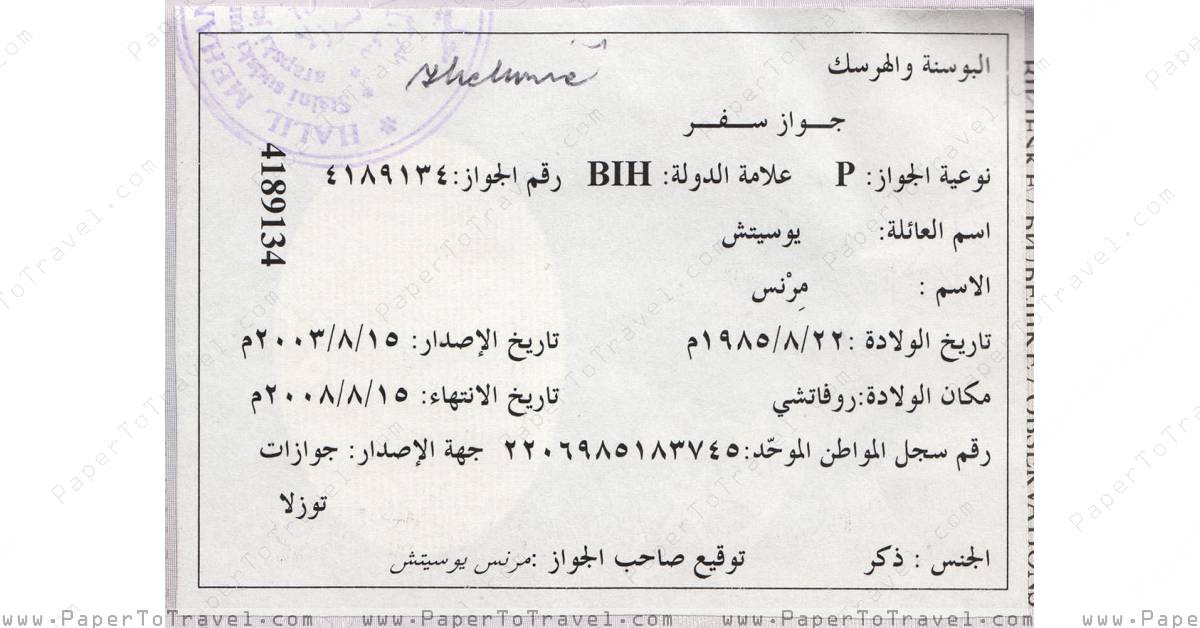 البوسنة والهرسك
جـــواز ســـفـــر
نوعية الجواز: P علامة الدولة: BIH رقم الجواز:٤١٨٩١٣٤
4189134
اسم العائلة: يوسيتش
الاسم : مِرْنس
تاريخ الولادة :١٩٨٥/٨/٢٢م تاريخ الإصدار: ٢٠٠٣/٨/١٥م
مكان الولادة:روفاتشي تاريخ الانتهاء: ٢٠٠٨/٨/١٥م
رقم سجل المواطن الموحّد:٢٢٠٦٩٨٥١٨٣٧٤٥ جهة الإصدار: جوازات
توزلا
الجنس : ذكر توقيع صاحب الجواز :مرنس يوسيتش
* HALIL MEHA
Stalni sudski
arapski
www.PaperToTravel.com www.PaperToTravel.com www.PaperToTravel.com www.Pape